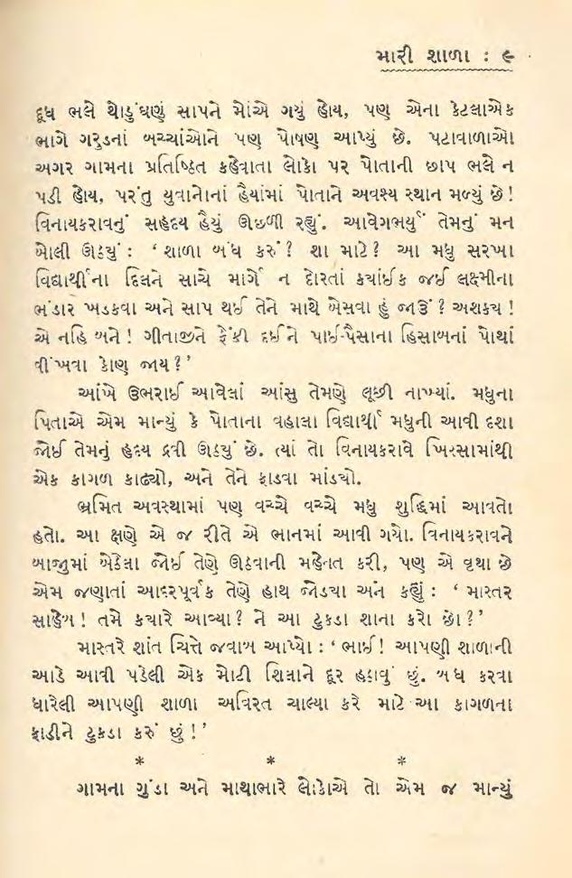 મારી શાળા : ૯
દૂધ ભલે થોડુંઘણું સાપને મોંએ ગયું હોય, પણ એના કેટલાએક
ભાગે ગરુડનાં બચ્ચાંઓને પણ પોષણ આપ્યું છે. પટાવાળાઓ
અગર ગામના પ્રતિષ્ઠિત કહેવાતા લોકો પર પોતાની છાપ ભલે ન
પડી હોય, પરંતુ યુવાનોનાં હૈયાંમાં પોતાને અવશ્ય સ્થાન મળ્યું છે!
વિનાયકરાવનું સહૃદય હૈયું ઊછળી રહ્યું. આવેગભર્યું તેમનું મન
બોલી ઊઠ્યું : ‘ શાળા બંધ કરું? શા માટે? આ મધુ સરખા
વિદ્યાર્થીના દિલને સાચે માર્ગે ન દોરતાં ક્યાંઈક જઈ લક્ષ્મીના
ભંડાર ખડકવા અને સાપ થઈ તેને માથે બેસવા હું જાઉં? અશક્ય!
એ નહિ બને! ગીતાજીને ફેંકી દઈને પાઈ-પૈસાના હિસાબનાં પોથાં
વીંખવા કોણ જાય?’
આંખે ઉભરાઈ આવેલાં આંસુ તેમણે લૂછી નાખ્યાં. મધુના
પિતાએ એમ માન્યું કે પોતાના વહાલા વિદ્યાર્થી મધુની આવી દશા
જોઈ તેમનું હૃદય દ્રવી ઊઠ્યું છે. ત્યાં તો વિનાયકરાવે ખિસ્સામાંથી
એક કાગળ કાઢ્યો, અને તેને ફાડવા માંડ્યો.
ભ્રમિત અવસ્થામાં પણ વચ્ચે વચ્ચે મધુ શુદ્ધિમાં આવતો
હતો. આ ક્ષણે એ જ રીતે એ ભાનમાં આવી ગયો. વિનાયકરાવને
બાજુમાં બેઠેલા જોઈ તેણે ઊઠવાની મહેનત કરી, પણ એ વૃથા છે
એમ જણાતાં આદરપૂર્વક તેણે હાથ જોડ્યા અને કહ્યું : ‘ માસ્તર
સાહેબ! તમે ક્યારે આવ્યા? ને આ ટુકડા શાના કરો છો?’
માસ્તરે શાંત ચિત્તે જવાબ આપ્યો : ‘ ભાઈ! આપણી શાળાની
આડે આવી પડેલી એક મોટી શિલાને દૂર હઠાવું છું. બંધ કરવા
ધારેલી આપણી શાળા અવિરત ચાલ્યા કરે માટે આ કાગળના
ફાડીને ટુકડા કરું છું!’
* * *
ગામના ગુંડા અને માથાભારે લોકોએ તો એમ જ માન્યું